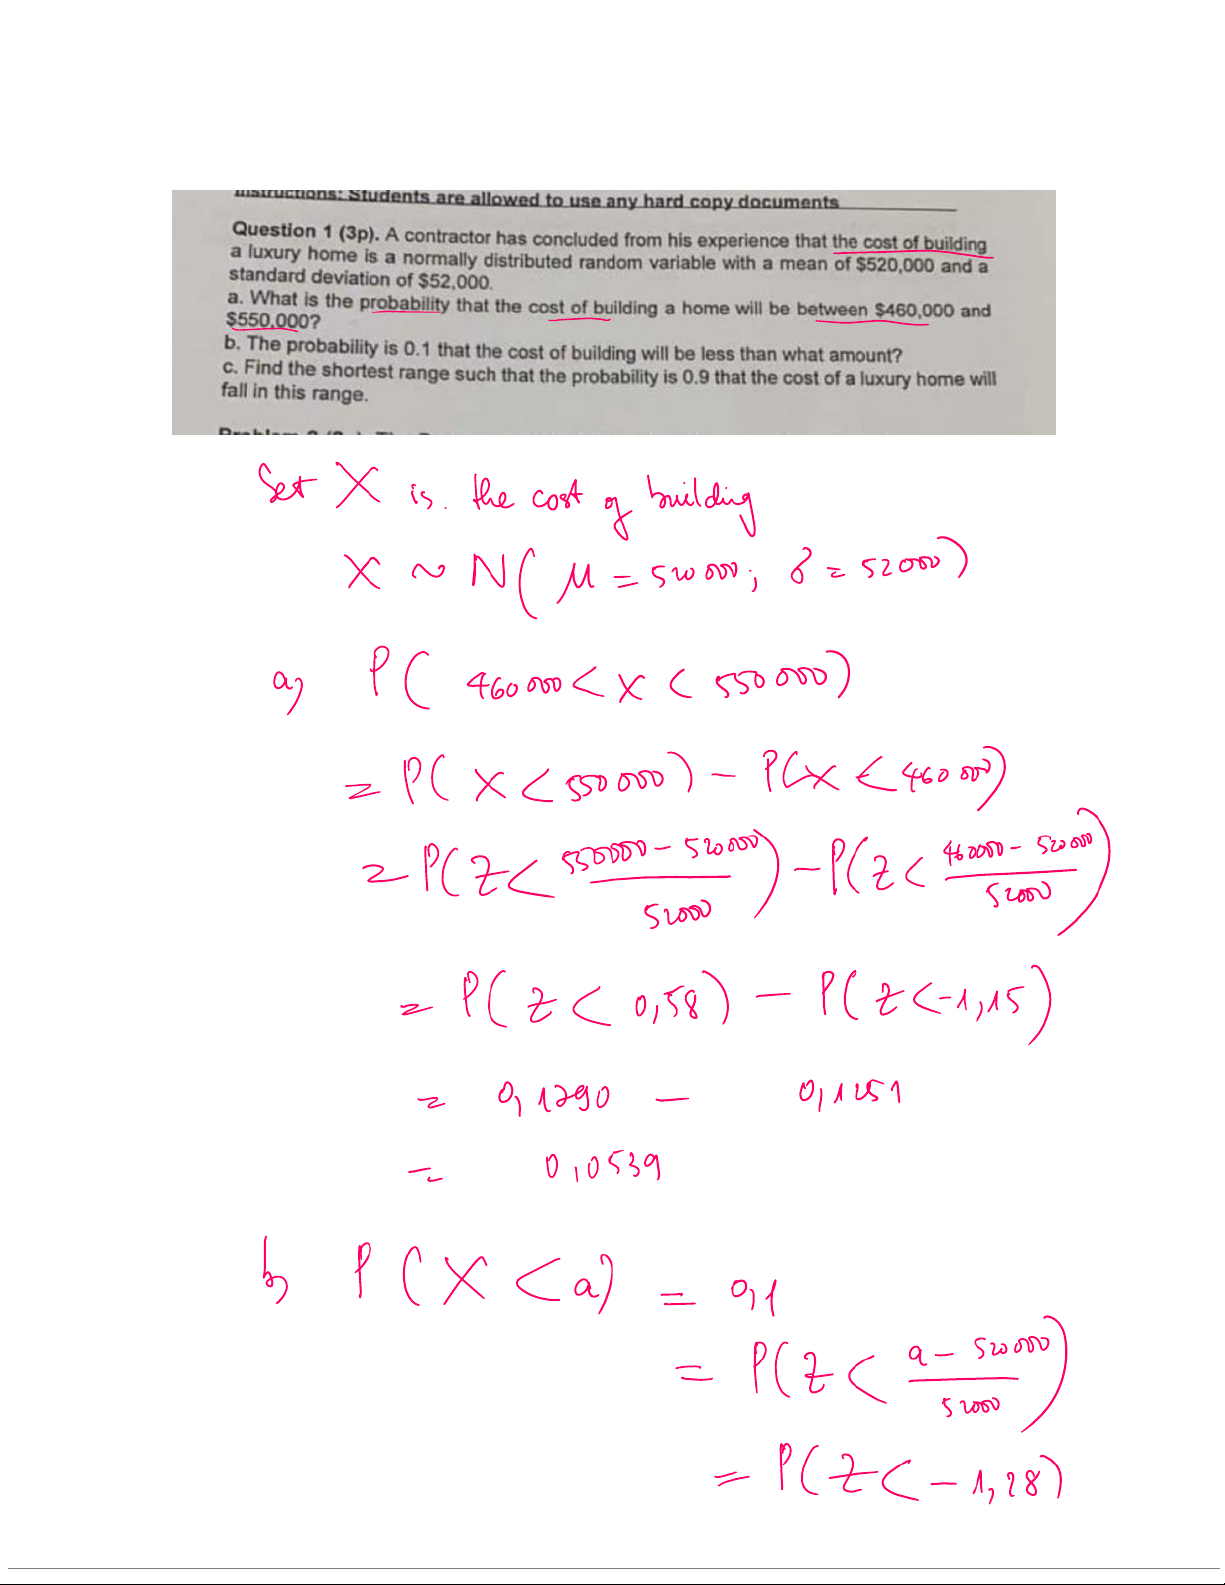 Instructions: Students are allowed to use any hard copy documents
Question 1 (3p). A contractor has concluded from his experience that the cost of building
a luxury home is a normally distributed random variable with a mean of $520,000 and a
standard deviation of $52,000.
a. What is the probability that the cost of building a home will be between $460,000 and
$550,000?
b. The probability is 0.1 that the cost of building will be less than what amount?
c. Find the shortest range such that the probability is 0.9 that the cost of a luxury home will
fall in this range.
Set X is. the cost of building
X ~ N( μ = 520 000; δ = 52000)
a) P( 460 000 < X < 550 000)
= P( X < 550 000) - P(X < 460 000)
= P(Z < (550000 - 520000)/52000) - P(Z < (460000 - 520000)/52000)
= P( Z < 0,58) - P( Z < -1,15)
= 0,1790 - 0,1251
= 0,0539
b) P (X < a) = 0,1
= P(Z < (a - 520000)/52000)
= P(Z < -1,28)